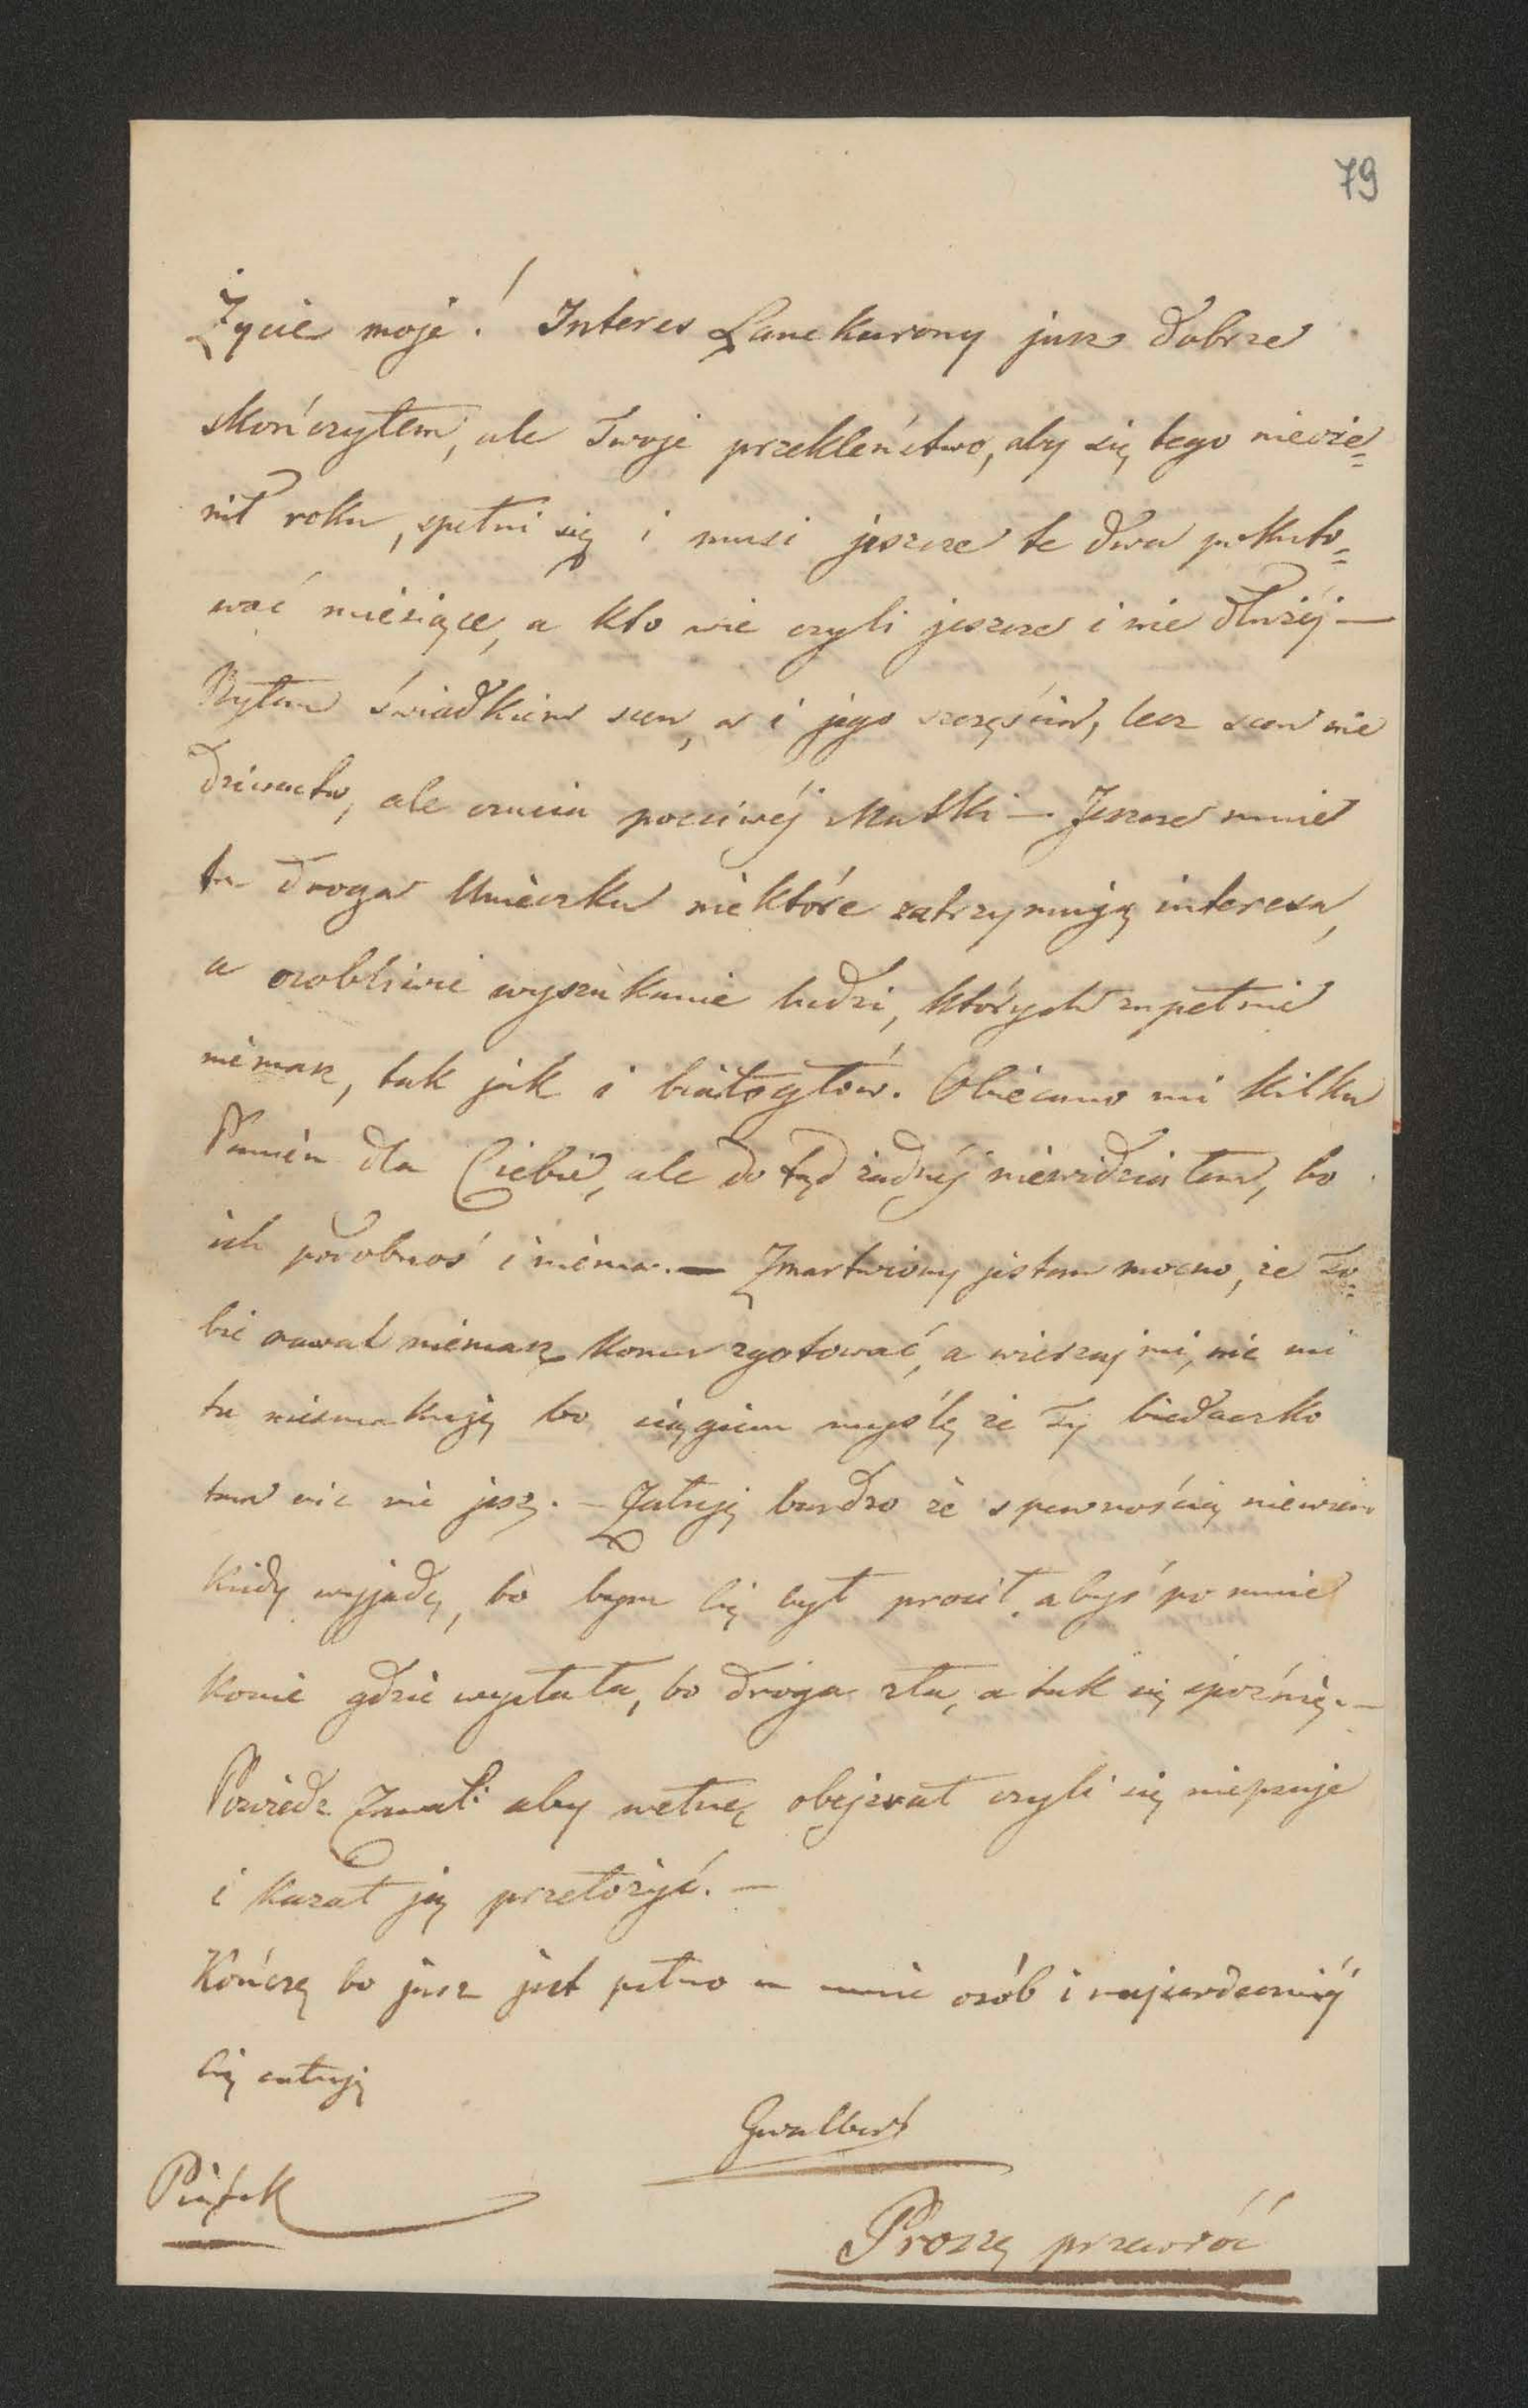 79
Życie moje! Interes Lanckurony jusz dobrze
skończyłem, ale Twoje przekleństwo, aby się tego nieoże=
nił roku, spełni się i musi jeszcze te dwa pokuto=
wać miesiące, a kto wie czyli jeszcze i nie dłużéj —
Byłem świadkiem scen, a i jego szczęścia, lecz scen nie
dziwactw, ale czucia poczciwéj Matki — Jeszcze mnie
tu droga Unieczku niektóre zatrzymują interesa,
a osobliwie wyszukanie ludzi, których zupełnie
niemasz, tak jak i białogłów. Obiecano mi kilka
Panien dla Ciebie, ale do tąd żadnéj niewidziałem, bo
ich podobnoś i niéma. — Zmartwiony jestem mocno, że To=
bie nawet niémasz komu zgotować, a wierzaj mi, nic mi
tu niesmakuję bo ciągiem myślę że Ty biedaczko
tam nic nie jesz. — Żałuję bardzo że s pewnością niewiem
kiedy wyjadę, bo bym Cię był prosił, abyś po mnie
konie gdzie wysłała, bo droga zła, a tak się spóźnię. —
Powiedz aby wełnę obejrzał czyli się niepsuje
i kazał ją przełożyć. —
Kończę bo jusz jest pełno u mnie osób i najserdeczniéj
Cię całuję
Gwalbert
Piątek
Proszę przewróć